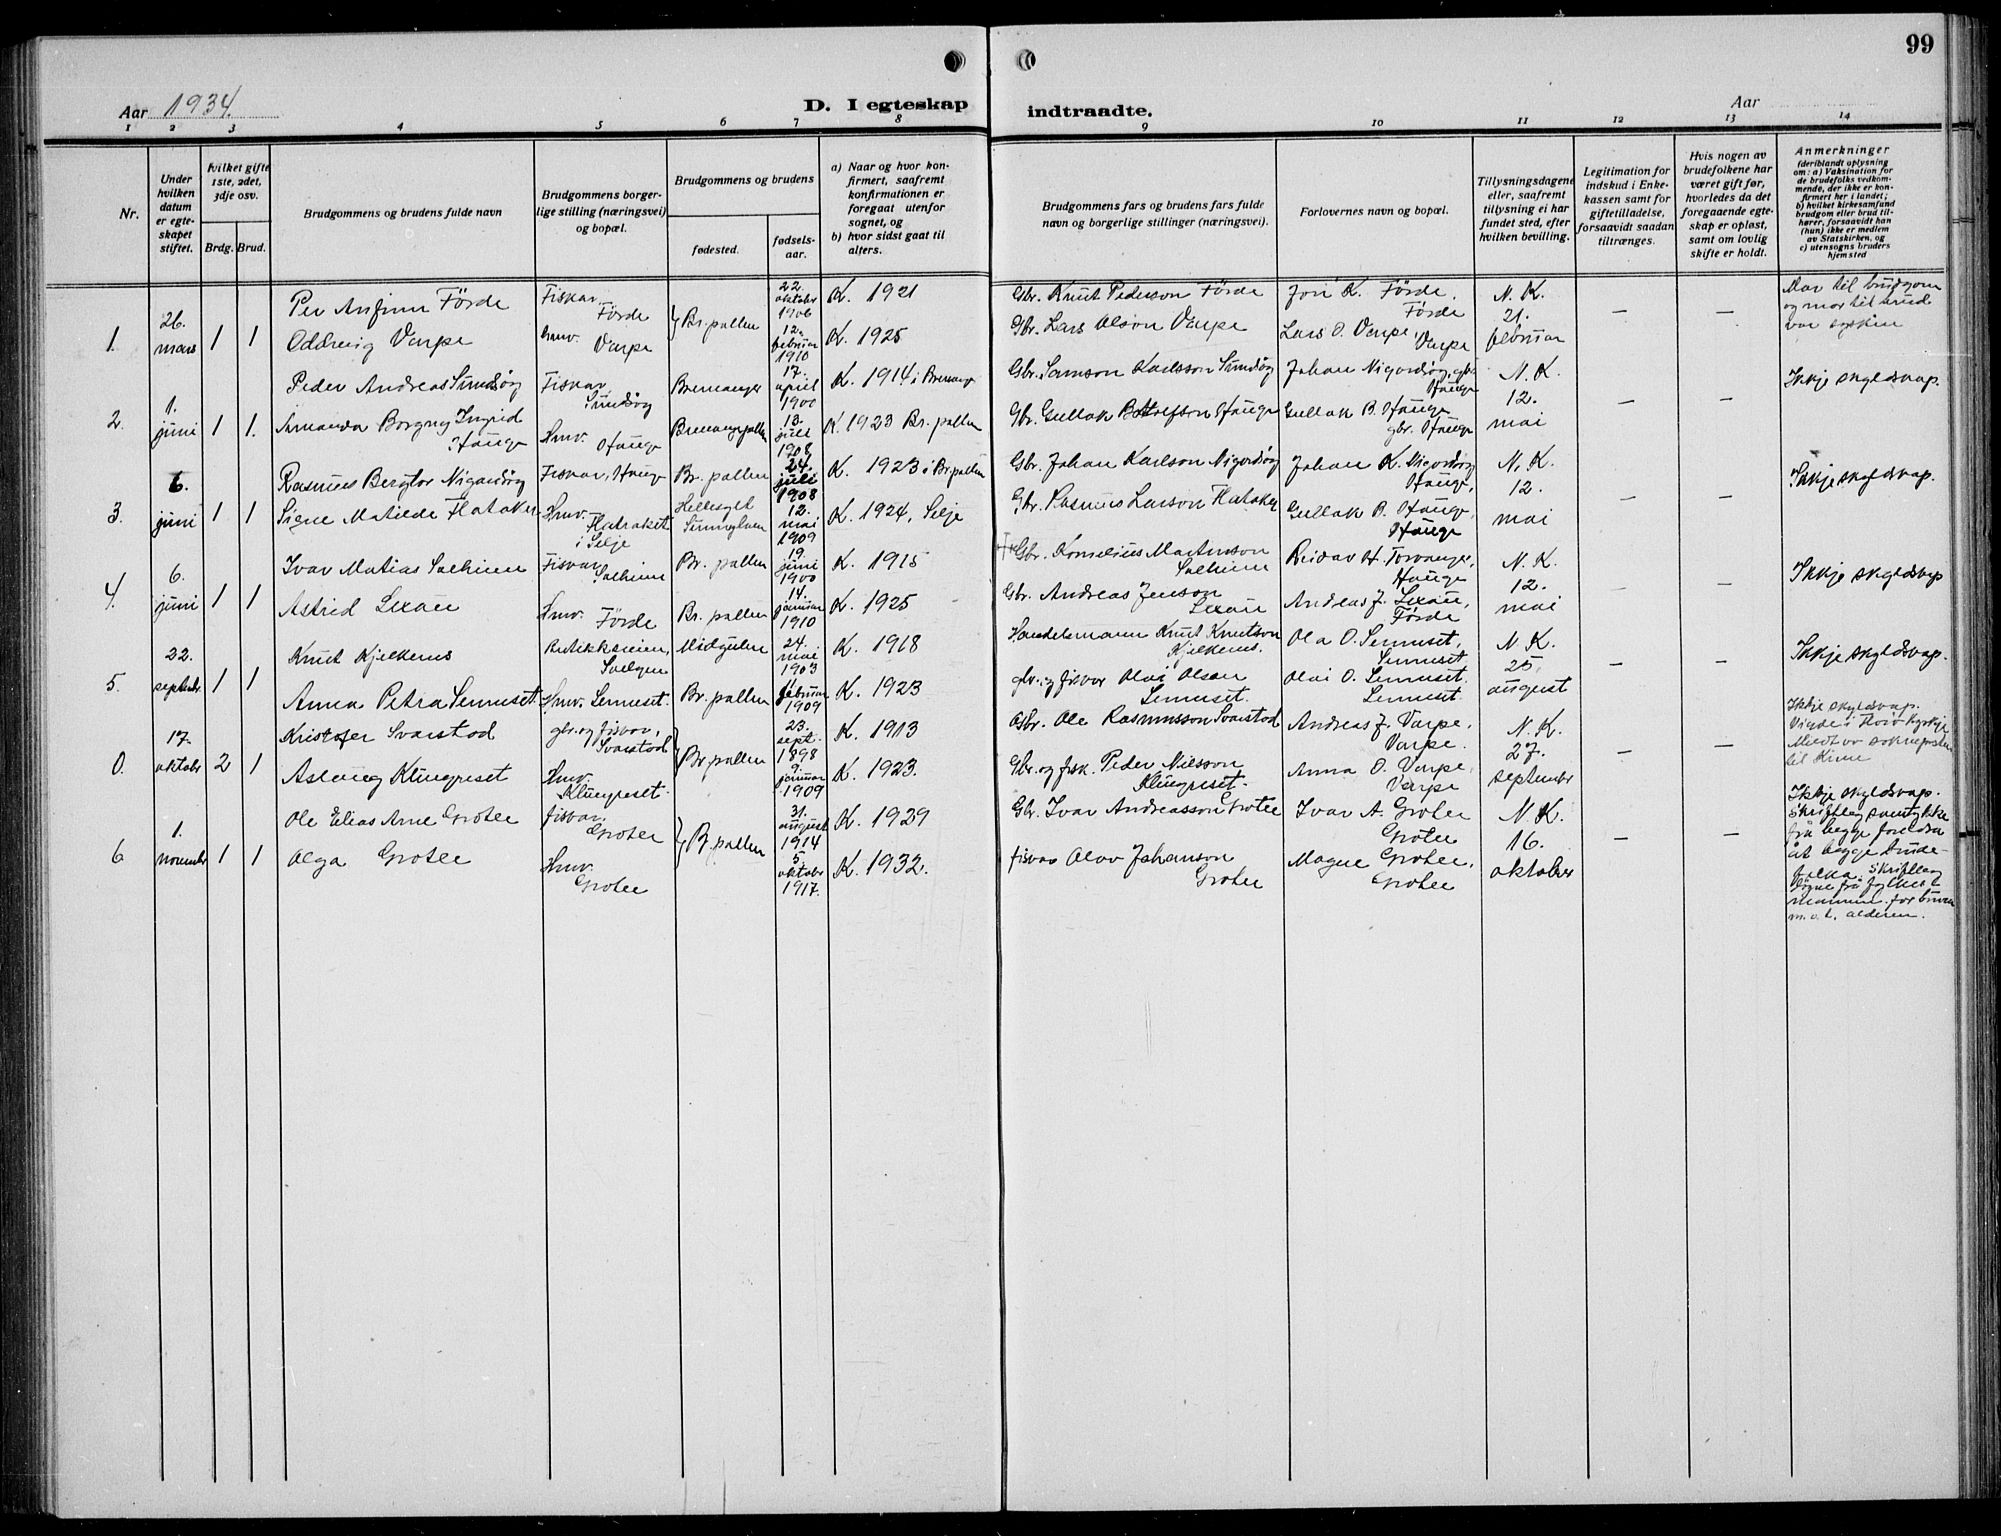 99
Aar 1934.
D. I egteskap
indtraadte.
Aar
1 2 3 4 5 6 7 8 9 10 11 12 13 14
Nr.
Under hvilken datum er egteskapet stiftet.
hvilket gifte 1ste, 2det, 3dje osv.
Brdg. Brud.
Brudgommens og brudens fulde navn
Brudgommens borgerlige stilling (næringsvei) og bopæl.
Brudgommens og brudens
fødested.
fødselsaar.
a) Naar og hvor konfirmert, saafremt konfirmationen er foregaat utenfor sognet, og
b) hvor sidst gaat til alters.
Brudgommens fars og brudens fars fulde navn og borgerlige stillinger (næringsvei).
Forlovernes navn og bopæl.
Tillysningsdagene eller, saafremt tillysning ei har fundet sted, efter hvilken bevilling.
Legitimation for indskud i Enkekassen samt for giftetilladelse, forsaavidt saadan tiltrænges.
Hvis nogen av brudefolkene har været gift før, hvorledes da det foregaaende egteskap er opløst, samt om lovlig skifte er holdt.
Anmerkninger
(deriblandt oplysning om: a) Vaksination for de brudefolks vedkommende, der ikke er konfirmert her i landet; b) hvilket kirkesamfund brudgom eller brud tilhører, forsaavidt han (hun) ikke er medlem av Statskirken, og c) utensogns bruders hjemsted
1. 26. mars 1 1
Per Anfinn Förde Fiskar, Förde } Br.pollen 22. oktober 1906 K. 1921 Gbr. Knut Pederson Förde Jon K. Förde, Förde N. K. 21. februar – – Mor til brudgom og mor til brud var sysken
Oddveig Varpe hmv. Varpe 12. februar 1910 K. 1925 Gbr. Lars Olson Varpe Lars O. Varpe, Varpe
2. 1. juni 1 1.
Peder Andreas Sundsøy Fiskar Sundsøy Bremanger 17. april 1900 K. 1914 i Bremang. Gbr. Samson Karlsson Sundsøy Johan Nigardsøy, gbr. Hauge N. K. 12. mai – – Ikkje skyldskap.
Amanda Borgny Ingrid Hauge Hmv. Hauge Bremangerpollen 13. juli 1908 K. 1923 Br. pollen Gbr. Gullak Botolfson Hauge Gullak B. Hauge gbr. Hauge
3. 6. juni 1 1
Rasmus Bergtor Nigardsøy Fiskar, Hauge Br. pollen 24. juli 1908 K. 1923 i Br.pollen Gbr. Johan Karlson Nigardsøy Johan K. Nigardsøy Hauge, N. K. 12. mai – – Ikkje skyldskap.
Signe Matilde Flatøker Hmv. Flatraket i Selje Hellesylt Sunnylven 12. mai 1909 K. 1924, Selje Gbr. Rasmus Larson Flatøker Gullak B. Hauge, Hauge
4. 6. juni 1 1
Ivar Matias Solheim Fiskar Solheim Br. pollen 19. juni 1900 K. 1915 Gbr. Kornelius Martinson Solheim Reidar H. Torvanger, Hauge N. K. 12. mai – – Ikkje skyldskap
Astrid Lexau Hmv. Förde Br. pollen 14. januar 1910 K. 1925 Gbr. Andreas Jenson Lexau Andreas J. Lexau, Förde
5. 22. septembr 1 1
Knut Kjelkenes Butikkseien, Svelgen Midgulen 24. mai 1903 K. 1918 Handelsmann Knut Knutson Kjelkenes. Ola O. Senneset, Senneset N. K. 25. august – – Ikkje skyldskap.
Anna Petra Senneset. Hmv. Senneset. Br. pollen februar 1909 K. 1923 gbr. og fiskar Olai Olsen Senneset. Olai O. Senneset. Senneset.
0. 17. oktobr 2 1
Kristofer Svarstad gbr. og fiskar, Svarstad } Br pollen 23. sept. 1898 K. 1913 Gbr. Ole Rasmusson Svarstad Andreas J. Varpe, Varpe. N. K. 27. september – – Ikkje skyldskap.
Aslaug Klungreset Hmv. Klungreset. 9. januar 1909 K. 1923. Gbr. og fisk. Peder Nilsson Klungreset. Anna O. Varpe, Varpe
6 1. novembr 1 1
Ole Elias Arne Grotle fiskar, Grotle } B. pollen 31. august 1914 K. 1929 Gbr. Ivar Andreasson Grotle Ivar A. Grotle Grotle N. K. 16. oktober – – Ikkje skyldskap. Skriftleg samtykke frå begge foreldra åt begge brudefolka. Skriftleg løyve frå fylkesmannen for brura m. o. t. alderen.
Olga Grotle Hmv. Grotle 5. oktobr 1917. K. 1932. fiskar Olav Johanson Grotle Magne Grotle, Grotle